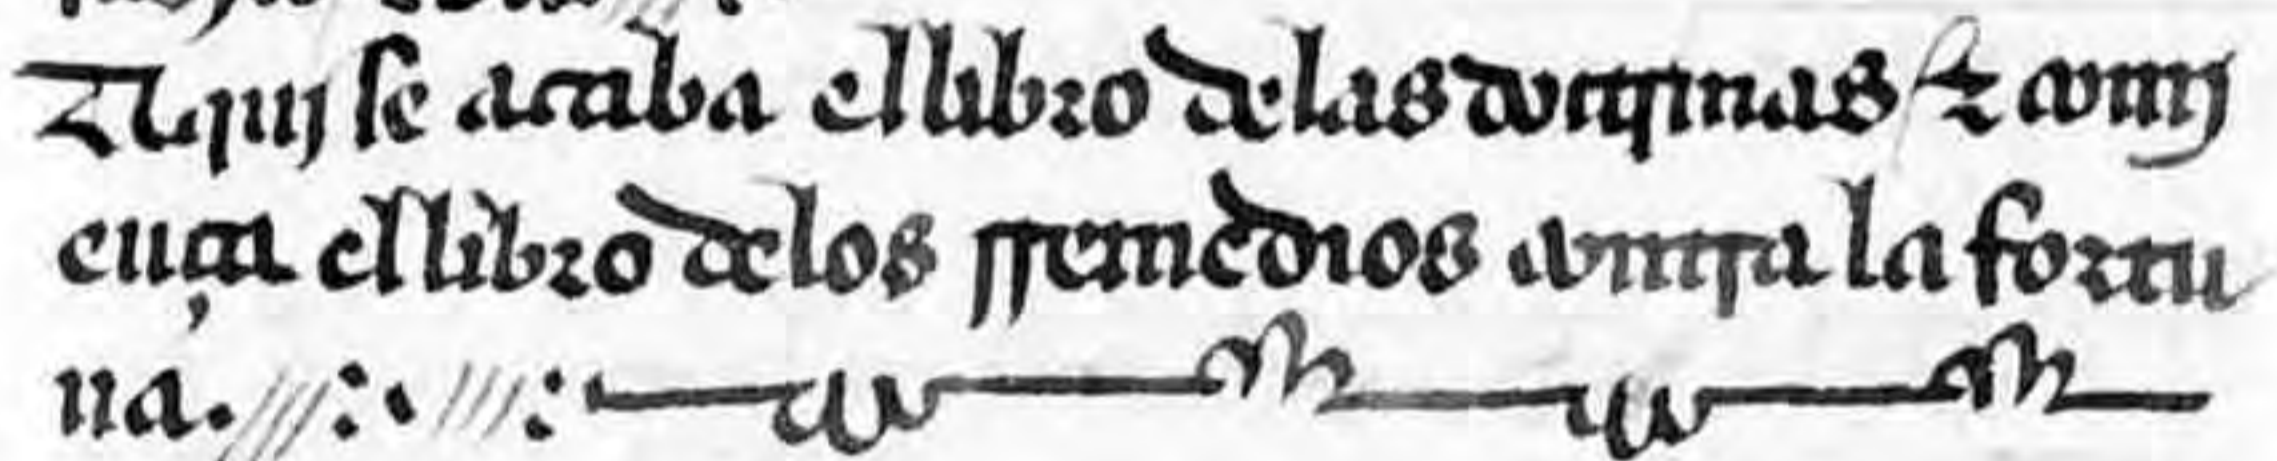 Aquj se acaba el libro delas doctrinas / & comj
ença el libro delos rremedios contra la fortu
na. ///:· ///: